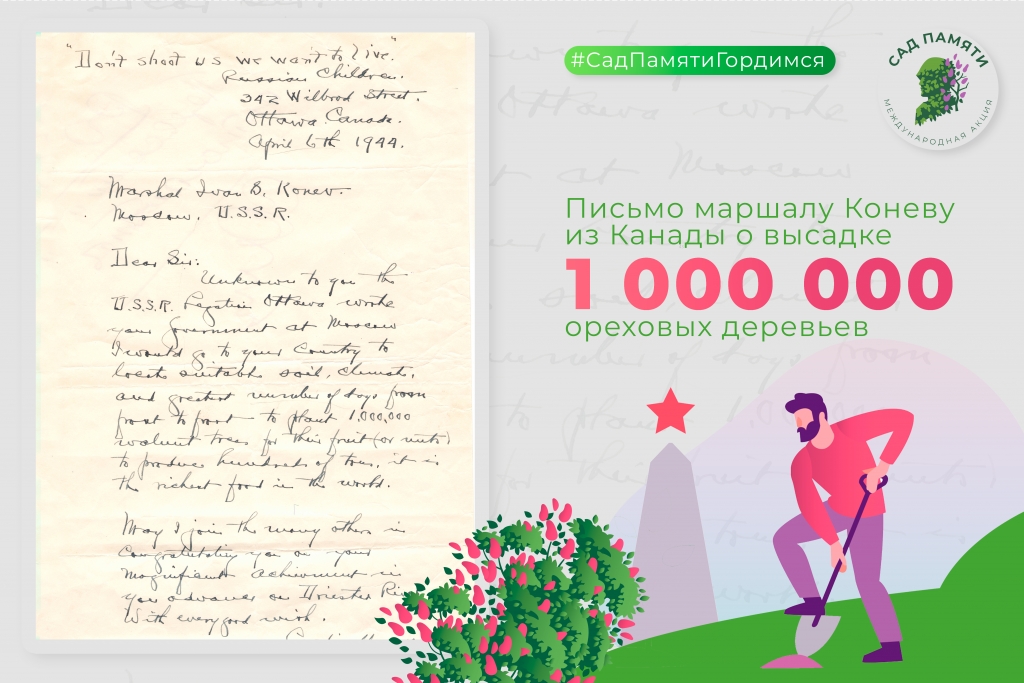 "Don't shoot us we want to live."
Russian Children.
342 Wilbrod Street.
Ottawa. Canada.
April 6th 1944.
Marshal Ivan S. Konev.
Moscow, U.S.S.R.
Dear Sir:
Unknown to you the
U.S.S.R. Legation Ottawa wrote
your government at Moscow
I would go to your Country to
locate suitable soil, climate,
and greatest number of days from
frost to frost to plant 1,000,000
walnut trees for their fruit (or nuts)
to produce hundreds of tons, it is
the richest food in the world.
May I join the many others in
Congratulating you on your
magnificent achievement in
you advance on Dniester
With every good wish.
#СадПамятиГордимся
САД ПАМЯТИ
МЕЖДУНАРОДНАЯ АКЦИЯ
Письмо маршалу Коневу
из Канады о высадке
1 000 000
ореховых деревьев